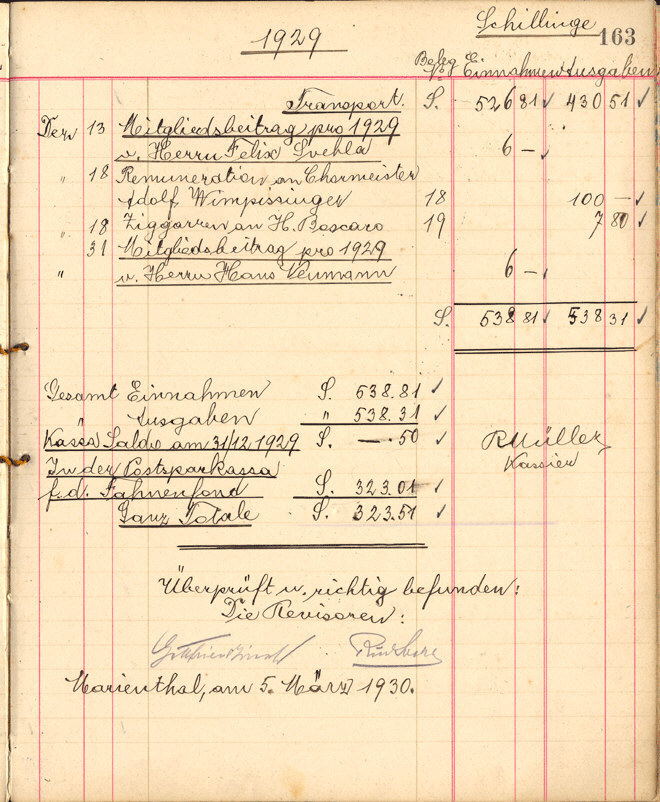 Schillinge
163
1929
Beleg No Einnahmen Ausgaben
Transport. S. 526 81 430 51
Dez 13 Mitgliedsbeitrag pro 1929
v. Herrn Felix Svehla 6 –
" 18 Remuneration an Chormeister
Adolf Wimpissinger 18 100 –
" 18 Ziggarren an H. Boscaro 19 7 80
31 Mitgliedsbeitrag pro 1929
" v. Herrn Hans Neumann 6 –
S. 538 81 538 31
Gesamt Einnahmen S. 538.81
" Ausgaben " 538.31
Kassa Saldo am 31/12 1929 S. —.50
In der Postsparkassa
f. d. Fahnenfond S. 323.01
Ganz Totale S. 323.51
RMüller
Kassier
Überprüft u. richtig befunden:
Die Revisoren:
Marienthal, am 5. März 1930.